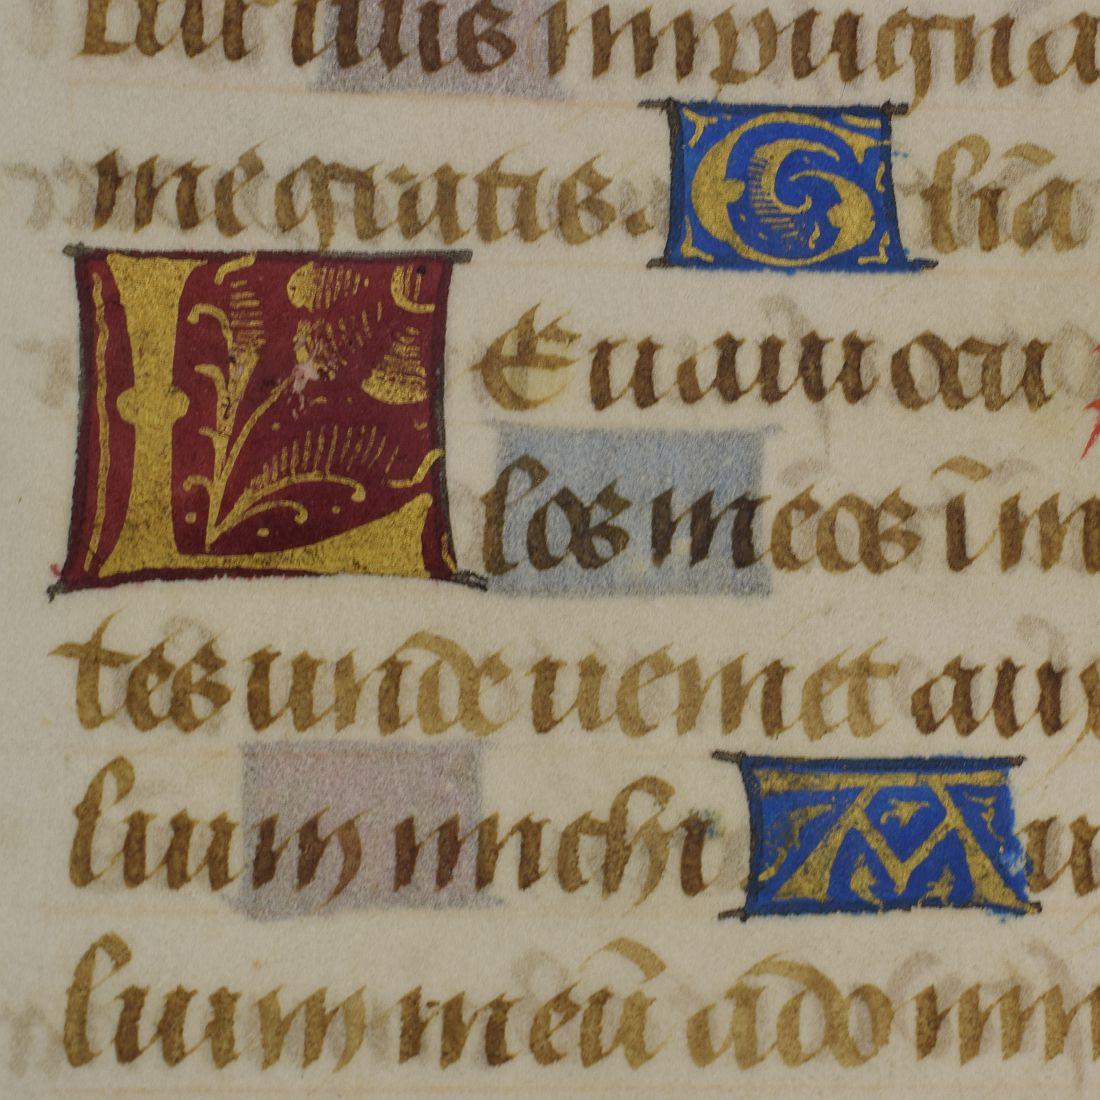 tur illis impugna
me gratis. Glīa
LEuaui ocu
los meos ī m
tes unde uemet aux
lium michi Au
lium meū a dō mm